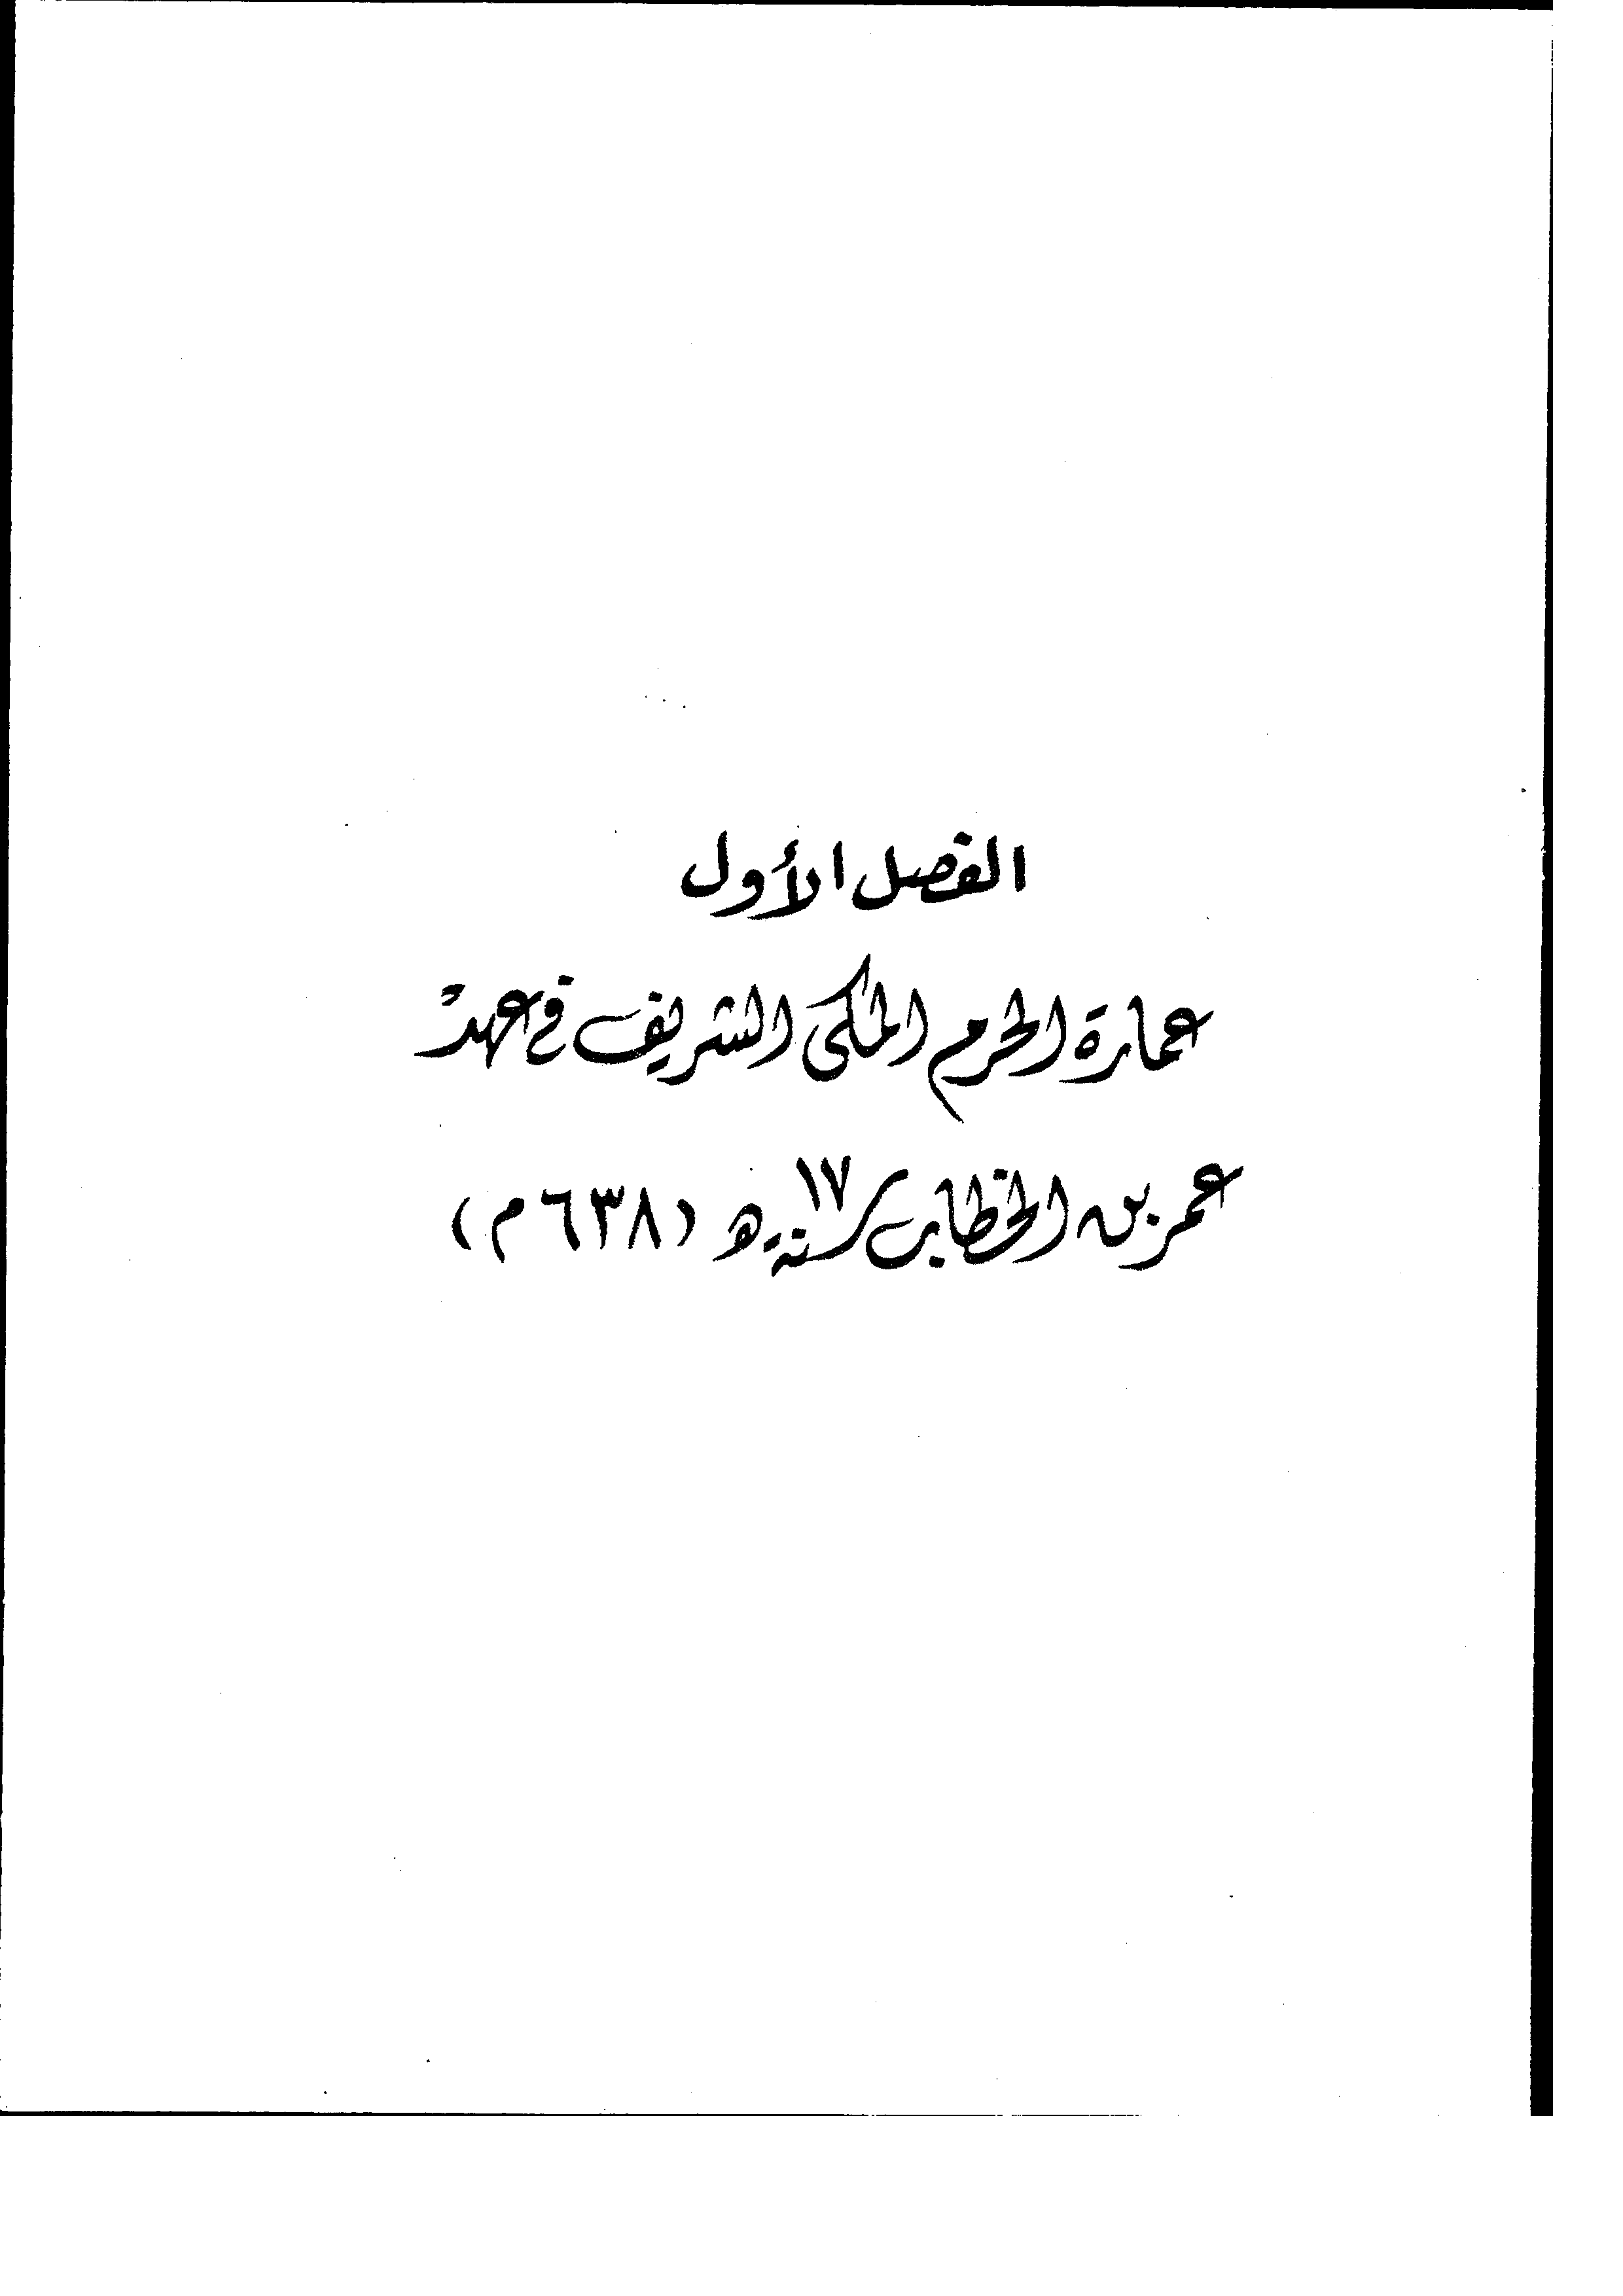 الفصل الأول
عمارة الحرم المكى الشريف في عهد
عمر بن الخطاب سنة ١٧ ه (٦٣٨ م)